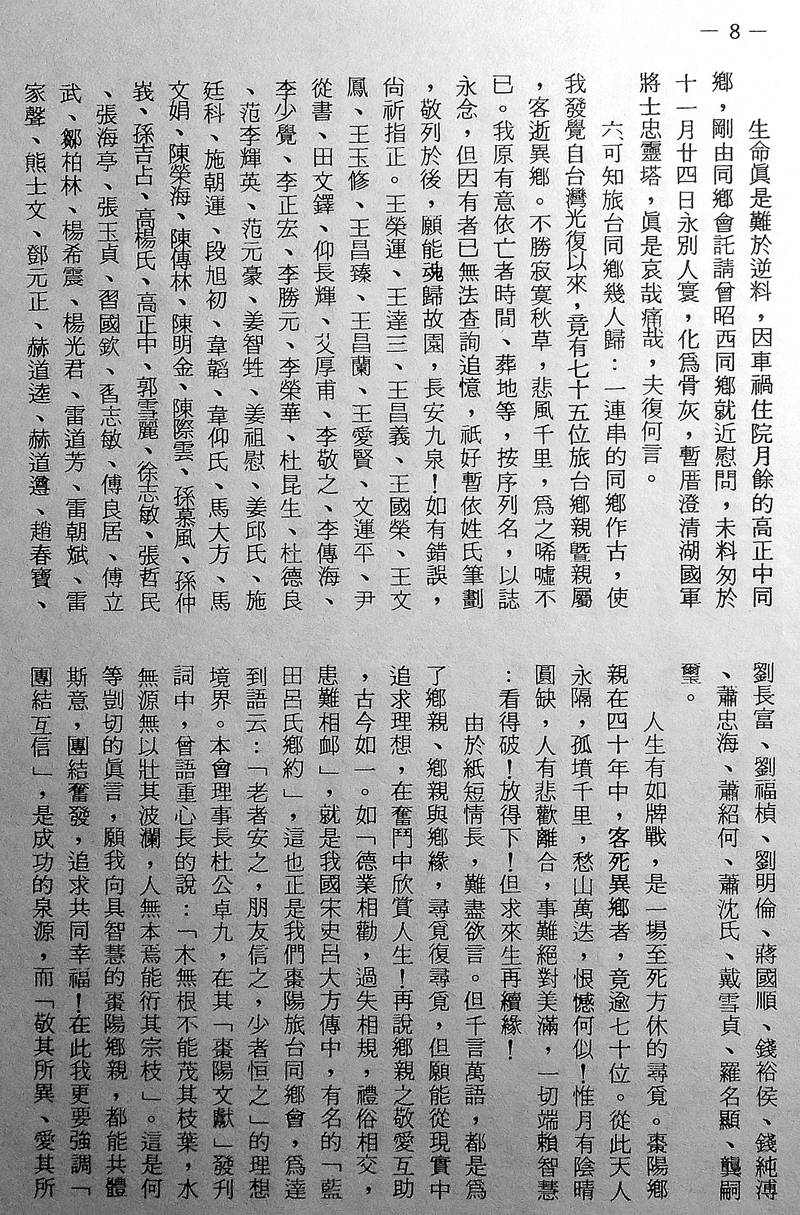 — 8 —
生命眞是難於逆料，因車禍住院月餘的高正中同
鄉，剛由同鄉會託請曾昭西同鄉就近慰問，未料匆於
十一月廿四日永別人寰，化爲骨灰，暫厝澄清湖國軍
將士忠靈塔，眞是哀哉痛哉，夫復何言。
六、可知旅台同鄉幾人歸：一連串的同鄉作古，使
我發覺自台灣光復以來，竟有七十五位旅台鄉親暨親屬
，客逝異鄉。不勝寂寞秋草，悲風千里，爲之唏噓不
已。我原有意依亡者時間、葬地等，按序列名，以誌
永念，但因有者已無法查詢追憶，祇好暫依姓氏筆劃
，敬列於後，願能魂歸故園，長安九泉！如有錯誤，
尙祈指正。王榮運、王達三、王昌義、王國榮、王文
鳳、王玉修、王昌臻、王昌蘭、王愛賢、文運平、尹
從書、田文鐸、仰長輝、艾厚甫、李敬之、李傳海、
李少覺、李正宏、李勝元、李榮華、杜昆生、杜德良
、范李輝英、范元豪、姜智甡、姜祖慰、姜邱氏、施
廷科、施朝運、段旭初、韋韜、韋仰氏、馬大方、馬
文娟、陳榮海、陳傳林、陳明金、陳際雲、孫慕風、孫仲
峩、孫吉占、高楊氏、高正中、郭雪麗、徐志敏、張哲民
、張海亭、張玉貞、習國欽、習志敏、傅良居、傅立
武、鄒柏林、楊希震、楊光君、雷道芳、雷朝斌、雷
家聲、熊士文、鄧元正、赫道逵、赫道遵、趙春寶、
劉長富、劉福楨、劉明倫、蔣國順、錢裕侯、錢純溥
、蕭忠海、蕭紹何、蕭沈氏、戴雪貞、羅名顯、龔嗣
璽。
人生有如牌戰，是一場至死方休的尋覓。棗陽鄉
親在四十年中，客死異鄉者，竟逾七十位。從此天人
永隔，孤墳千里，愁山萬迭，恨憾何似！惟月有陰晴
圓缺，人有悲歡離合，事難絕對美滿，一切端賴智慧
：看得破！放得下！但求來生再續緣！
由於紙短情長，難盡欲言。但千言萬語，都是爲
了鄉親、鄉親與鄉緣，尋覓復尋覓，但願能從現實中
追求理想，在奮鬥中欣賞人生！再說鄉親之敬愛互助
，古今如一。如「德業相勸，過失相規，禮俗相交，
患難相卹」，就是我國宋史呂大方傳中，有名的「藍
田呂氏鄉約」，這也正是我們棗陽旅台同鄉會，爲達
到語云：「老者安之，朋友信之，少者恒之」的理想
境界。本會理事長杜公卓九，在其「棗陽文獻」發刊
詞中，曾語重心長的說：「木無根不能茂其枝葉，水
無源無以壯其波瀾，人無本焉能衍其宗枝」。這是何
等剴切的眞言，願我向具智慧的棗陽鄉親，都能共體
斯意，團結奮發，追求共同幸福！在此我更要強調「
團結互信」，是成功的泉源，而「敬其所異、愛其所